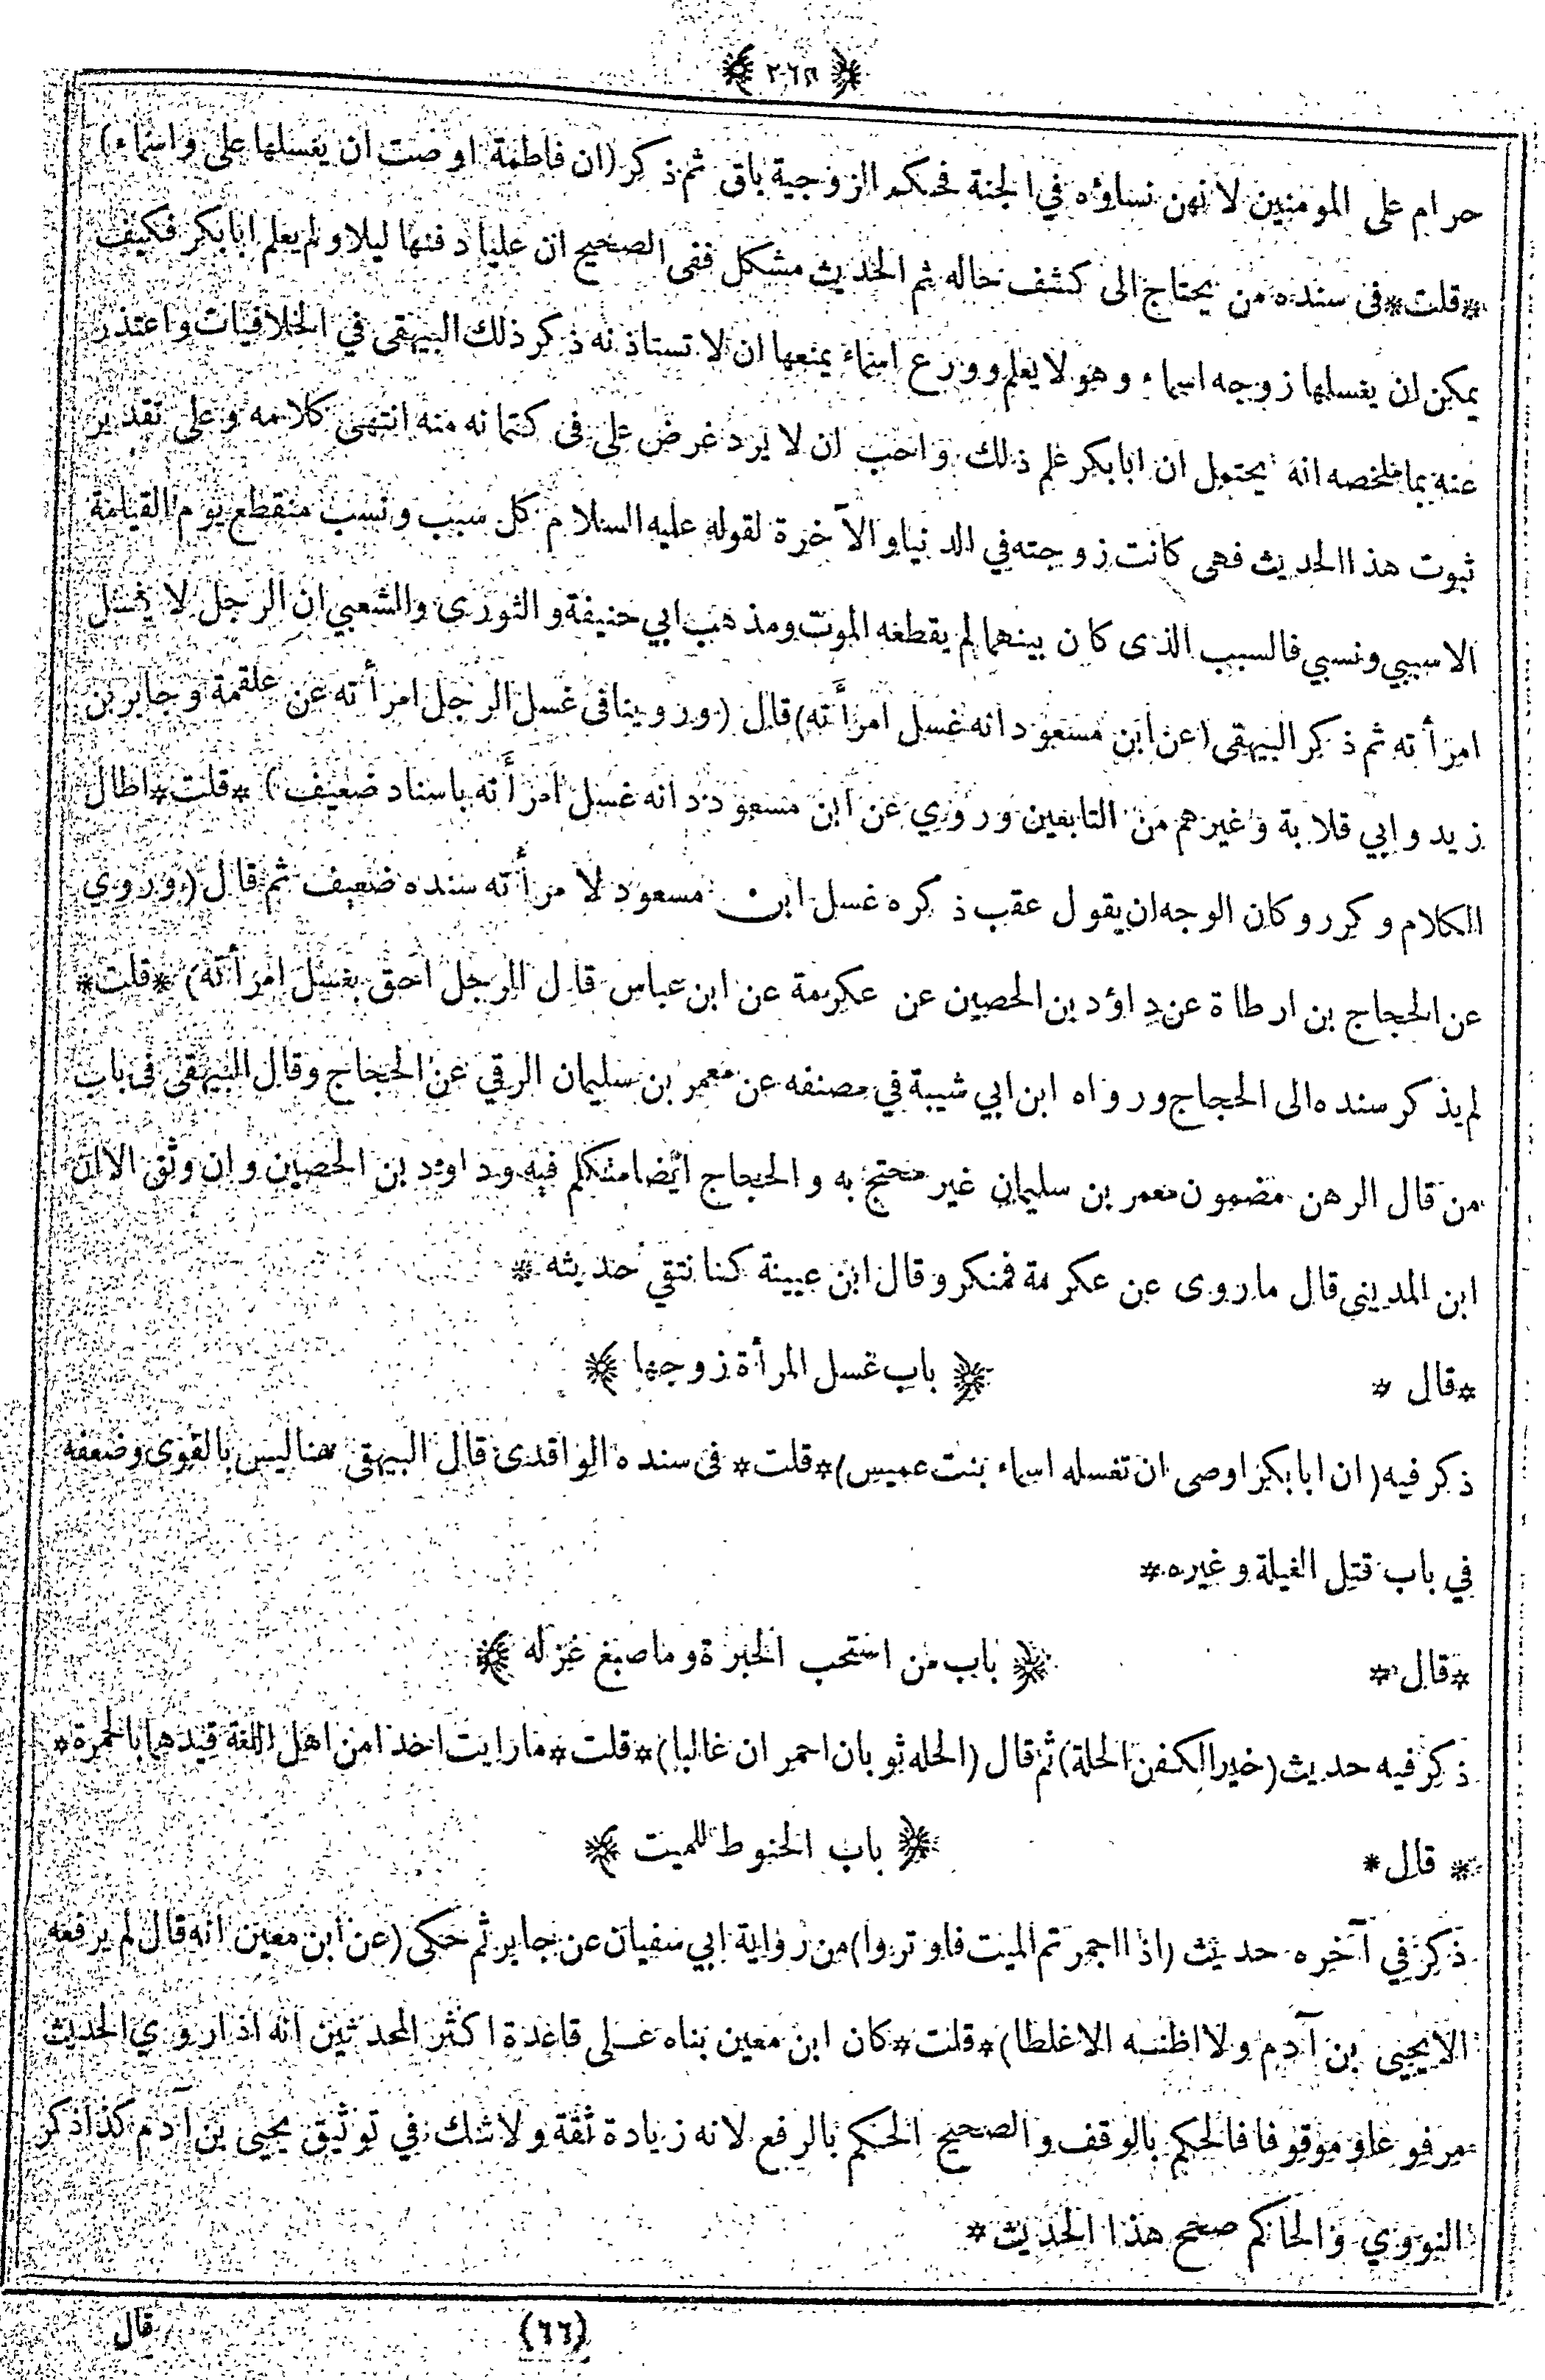 ﴿ ٢٦٢ ﴾
حرام على المومنين لانهن نساؤه في الجنة فحكم الزوجية باق ثم ذكر (ان فاطمة اوصت ان يغسلها على واسماء)
*قلت* فى سنده من يحتاج الى كشف حاله ثم الحديث مشكل ففى الصحيح ان عليا دفنها ليلا ولم يعلم ابا بكر فكيف
يمكن ان يغسلها زوجه اسماء وهو لا يعلم وورع اسماء يمنعها ان لا تستاذنه ذكر ذلك البيهقى في الخلافيات واعتذر
عنه بما ملخصه انه يحتمل ان ابا بكر علم ذلك واحب ان لا يرد غرض على فى كتمانه منه انتهى كلامه وعلى تقدير
ثبوت هذا الحديث فهى كانت زوجته في الدنيا والآخرة لقوله عليه السلام كل سبب ونسب منقطع يوم القيامة
الا سببي ونسبي فالسبب الذى كان بينهما لم يقطعه الموت ومذهب ابي حنيفة والثورى والشعبي ان الرجل لا يغسل
امرأته ثم ذكر البيهقى (عن ابن مسعود انه غسل امرأته) قال (وروينا فى غسل الرجل امرأته عن علقمة وجابر بن
زيد وابي قلابة وغيرهم من التابعين وروي عن ابن مسعود دانه غسل امرأته باسناد ضعيف) *قلت* اطال
الكلام وكرر وكان الوجه ان يقول عقب ذكره غسل ابن مسعود لا مرأته سنده ضعيف ثم قال (وروي
عن الحجاج بن ارطاة عن داؤد بن الحصين عن عكرمة عن ابن عباس قال الرجل احق بغسل امرأته) *قلت*
لم يذكر سنده الى الحجاج ورواه ابن ابي شيبة في مصنفه عن معمر بن سليمان الرقي عن الحجاج وقال البيهقى فى باب
من قال الرهن مضمون معمر بن سليمان غير محتج به والحجاج ايضا متكلم فيه وداود بن الحصين وان وثق الا ان
ابن المديني قال ما روى عن عكرمة فمنكر وقال ابن عيينة كنا نتقي حديثه *
*قال * ﴿ باب غسل المرأة زوجها ﴾
ذكر فيه (ان ابا بكر اوصى ان تغسله اسماء بنت عميس) *قلت* فى سنده الواقدى قال البيهقى هنا ليس بالقوى وضعفه
في باب قتل الغيلة وغيره *
*قال * ﴿ باب من استحب الحبرة وما صبغ غزله ﴾
ذكر فيه حديث (خير الكفن الحلة) ثم قال (الحله ثوبان احمران غالبا) *قلت* ما رايت احدا من اهل اللغة قيدها بالحمرة *
* قال * ﴿ باب الحنوط للميت ﴾
ذكر في آخره حديث (اذا اجمرتم الميت فاوتروا) من رواية ابي سفيان عن جابر ثم حكى (عن ابن معين انه قال لم يرفعه
الا يحيى بن آدم ولا اظنه الا غلطا) *قلت* كان ابن معين بناه على قاعدة اكثر المحدثين انه اذا روي الحديث
مرفوعا وموقوفا فالحكم بالوقف والصحيح الحكم بالرفع لانه زيادة ثقة ولا شك في توثيق يحيى بن آدم كذا ذكر
النووي والحاكم صحح هذا الحديث *
(٦٦)
قال